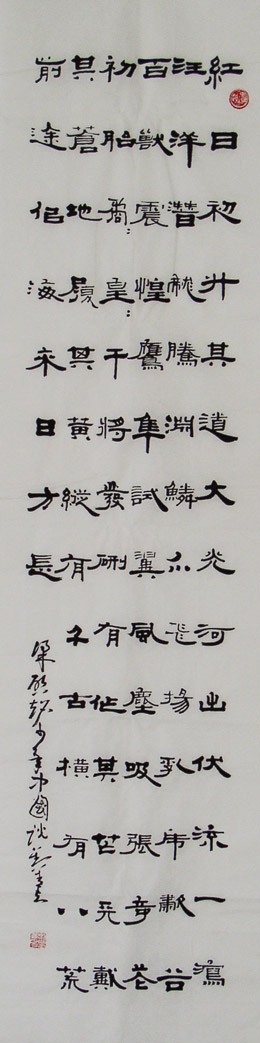 紅日初升其道大光河出伏流一瀉
汪洋潛龍騰淵鱗爪飛揚乳虎嘯谷
百獸震惶鷹隼試翼風塵吸張奇花
初胎矞:皇:干將發硎有作其芒天戴
其蒼地履其黃縱有千古橫有八荒
前途似海來日方長
梁啟超少年中國説